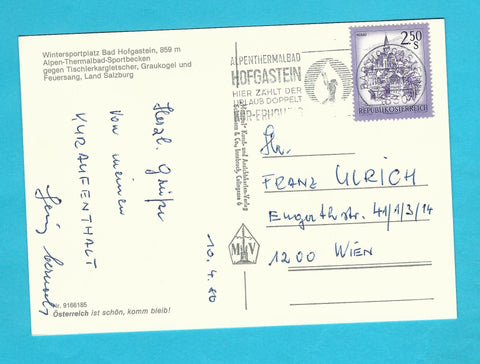 Wintersportplatz Bad Hofgastein, 859 m
Alpen-Thermalbad-Sportbecken
gegen Tischlerkargletscher, Graukogel und
Feuersang, Land Salzburg
Herzl. Grüße
von meinem
KURAUFENTHALT
Nr. 9166185
Österreich ist schön, komm bleib!
ALPENTHERMALBAD
HOFGASTEIN
HIER ZÄHLT DER
URLAUB DOPPELT
KUR-ERHOLUNG
2.50
S
REPUBLIK ÖSTERREICH
10.4.80
Hr.
FRANZ ULRICH
Engerthstr. 41/1/3/14
1200 WIEN